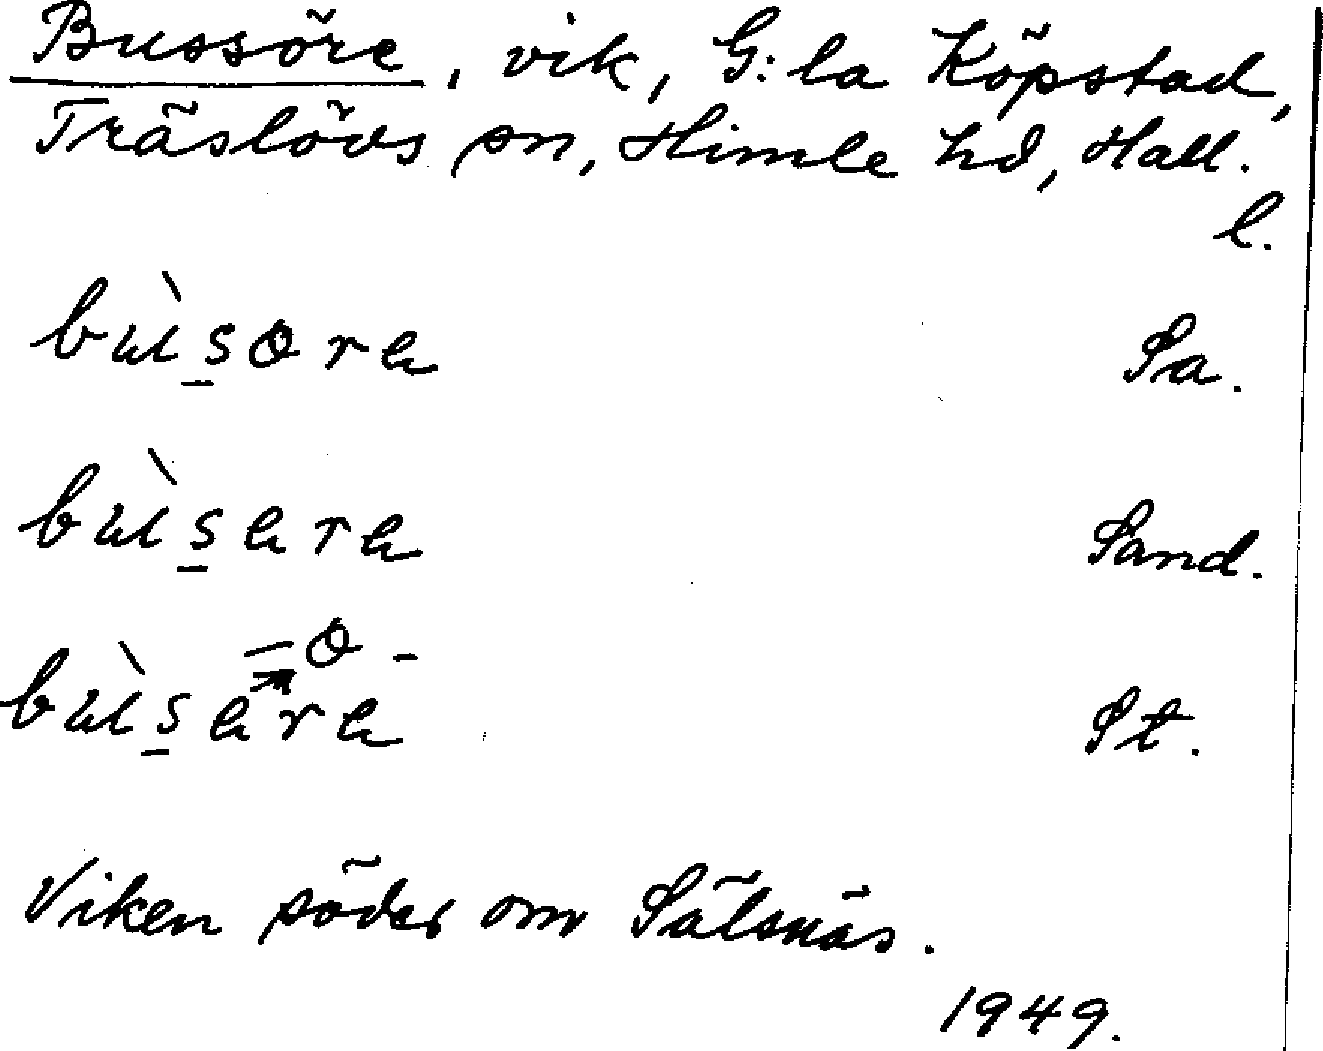 Bussöre, vik, G:la Köpstad,
Träslövs sn, Himle hd, Hall.
l.
bùsɵrə Sa.
bùsərə Sand.
-ɵ-
bùsərə St.
Viken söder om Sälsnäs.
1949.